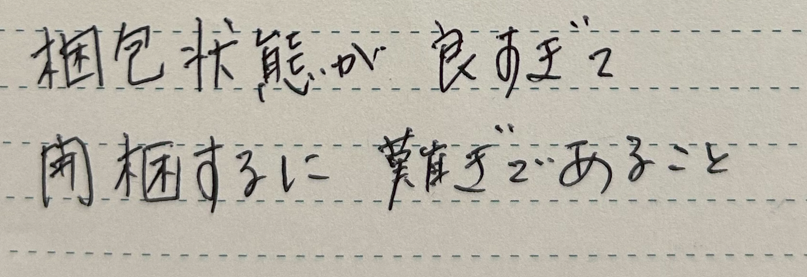 梱包状態が良すぎて
開梱するに難ぎであること